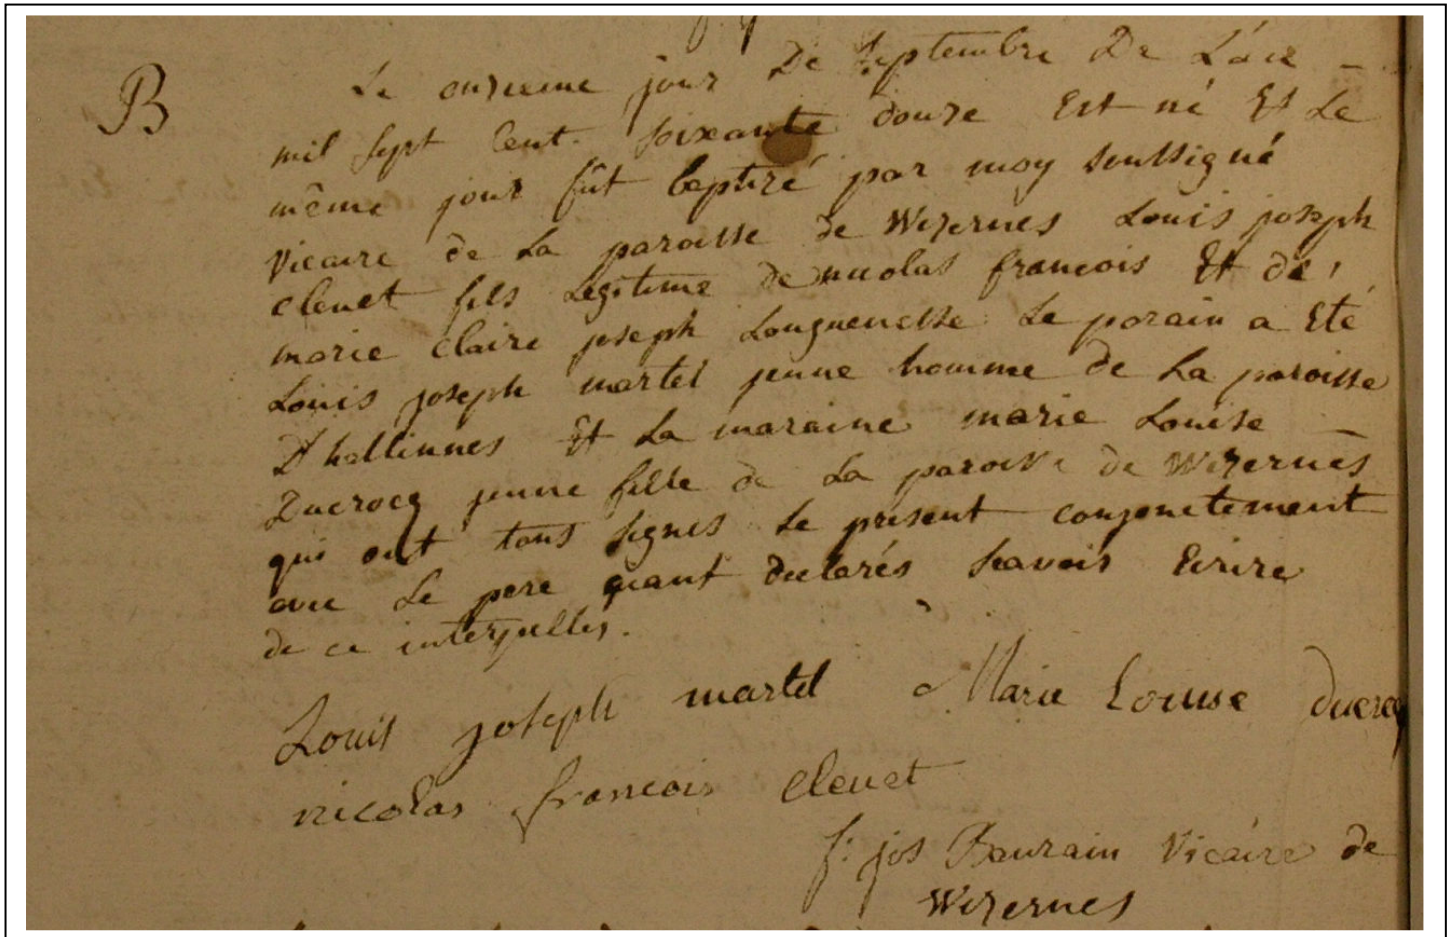 B
Le onzieme jour De Septembre De L'an -
mil sept cent soixante douze Est né Et Le
même jour fût baptizé par moy soussigné
vicaire de La paroisse de Wizernes Louis joseph
clenet fils Legitime De nicolas francois Et de
marie claire joseph Longuenesse Le parain a Eté
Louis joseph martel jeune homme de La paroisse
D'hallinnes Et La maraine marie Louise -
Ducrocq jeune fille de La paroisse de Wizernes
qui ont tous signés Le présent conjonctement
avec Le pere aiant declarés scavoir Ecrire
de ce interpellés.
Louis joseph martel Marie Louise ducrocq
nicolas francois clenet
f: jos Baurain Vicaire de
Wizernes